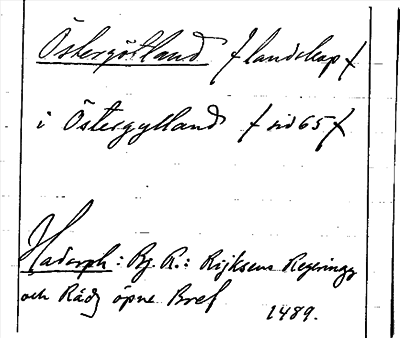 Östergötland /landskap/
i Östergylland /sid 65/
Hadorph: Bj. R.: Rijksens Regeringz
och Rådz öpne Bref 1489.